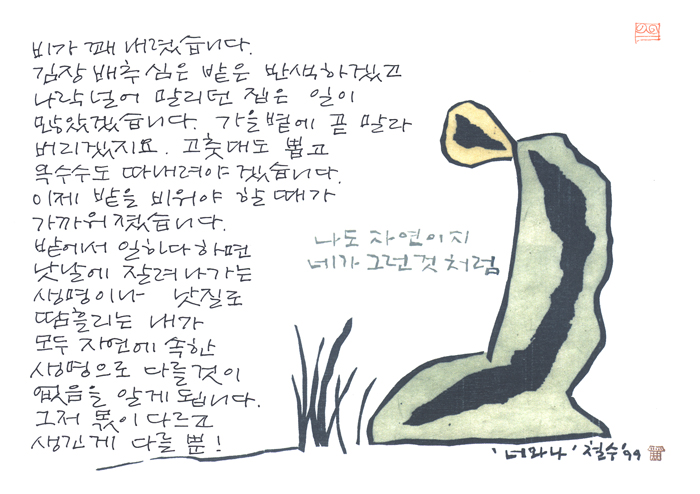 비가 꽤 내렸습니다.
김장 배추 심은 밭은 반색하겠고
나락 널어 말리던 집은 일이
많았겠습니다. 가을볕에 곧 말라
버리겠지요. 고춧대도 뽑고
옥수수도 따내려야겠습니다.
이제 밭을 비워야 할 때가
가까워졌습니다.
밭에서 일하다 하면
낫날에 잘려나가는
생명이나 낫질로
땀흘리는 내가
모두 자연에 속한
생명으로 다를것이
없음을 알게 됩니다.
그저 몫이 다르고
생긴게 다를 뿐!
나도 자연이지
네가 그런 것 처럼
'너와나' 철수 '99